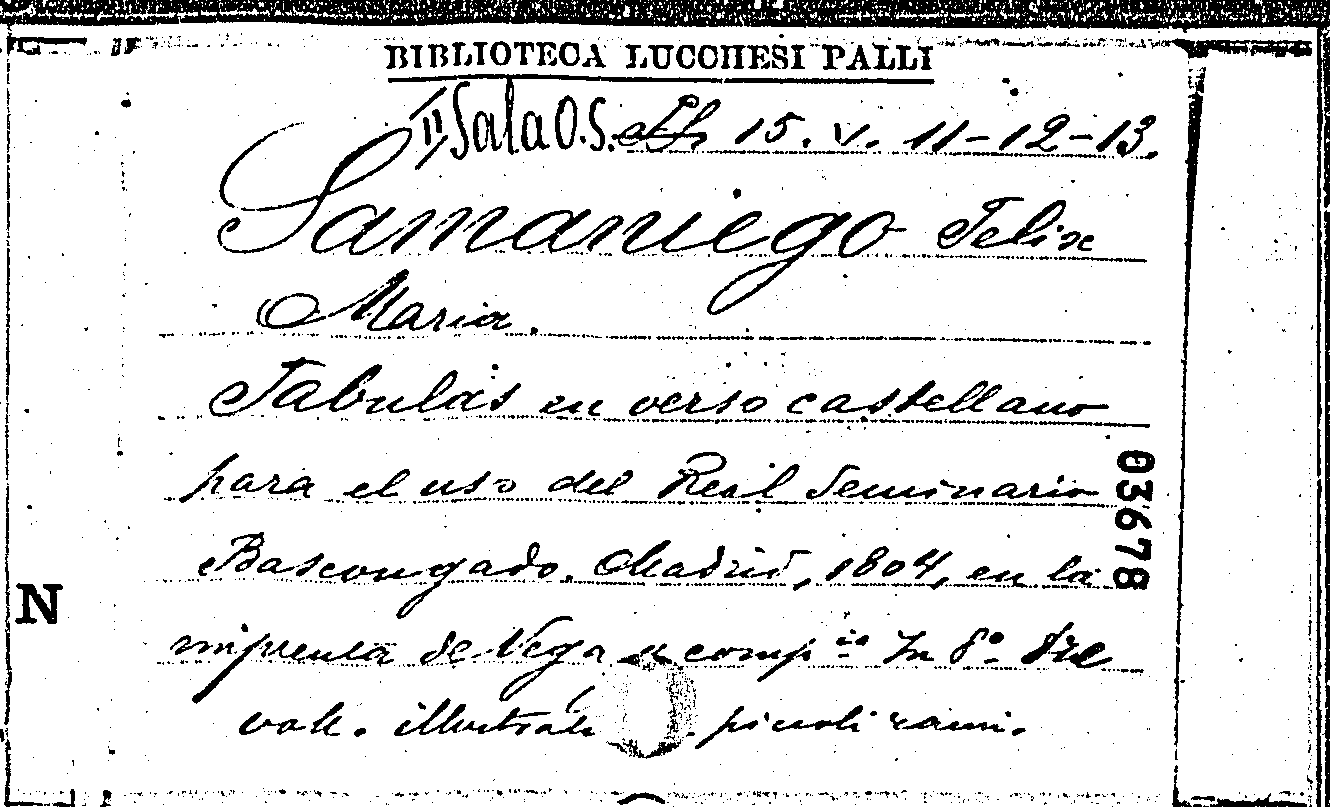 BIBLIOTECA LUCCHESI PALLI
II, Sala O.S. 15. V. 11-12-13.
Samaniego Felix
Maria.
Fabulas en verso castellano
para el uso del Real Seminario
Bascongado. Madrid, 1804, en la
imprenta de Vega y comp.ia In 8º. Due
voll. illustrati piccoli rami.
03678
N